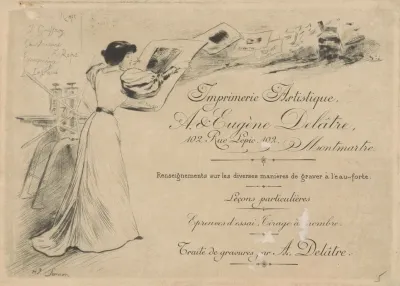 Imprimerie Artistique.
A. & Eugène Delâtre,
102. Rue Lepic. 102.
Montmartre.
Renseignements sur les diverses manières de graver à l'eau-forte.
Leçons particulières
Epreuves d'essai, Tirage à nombre.
Traité de gravures, par A. Delâtre.